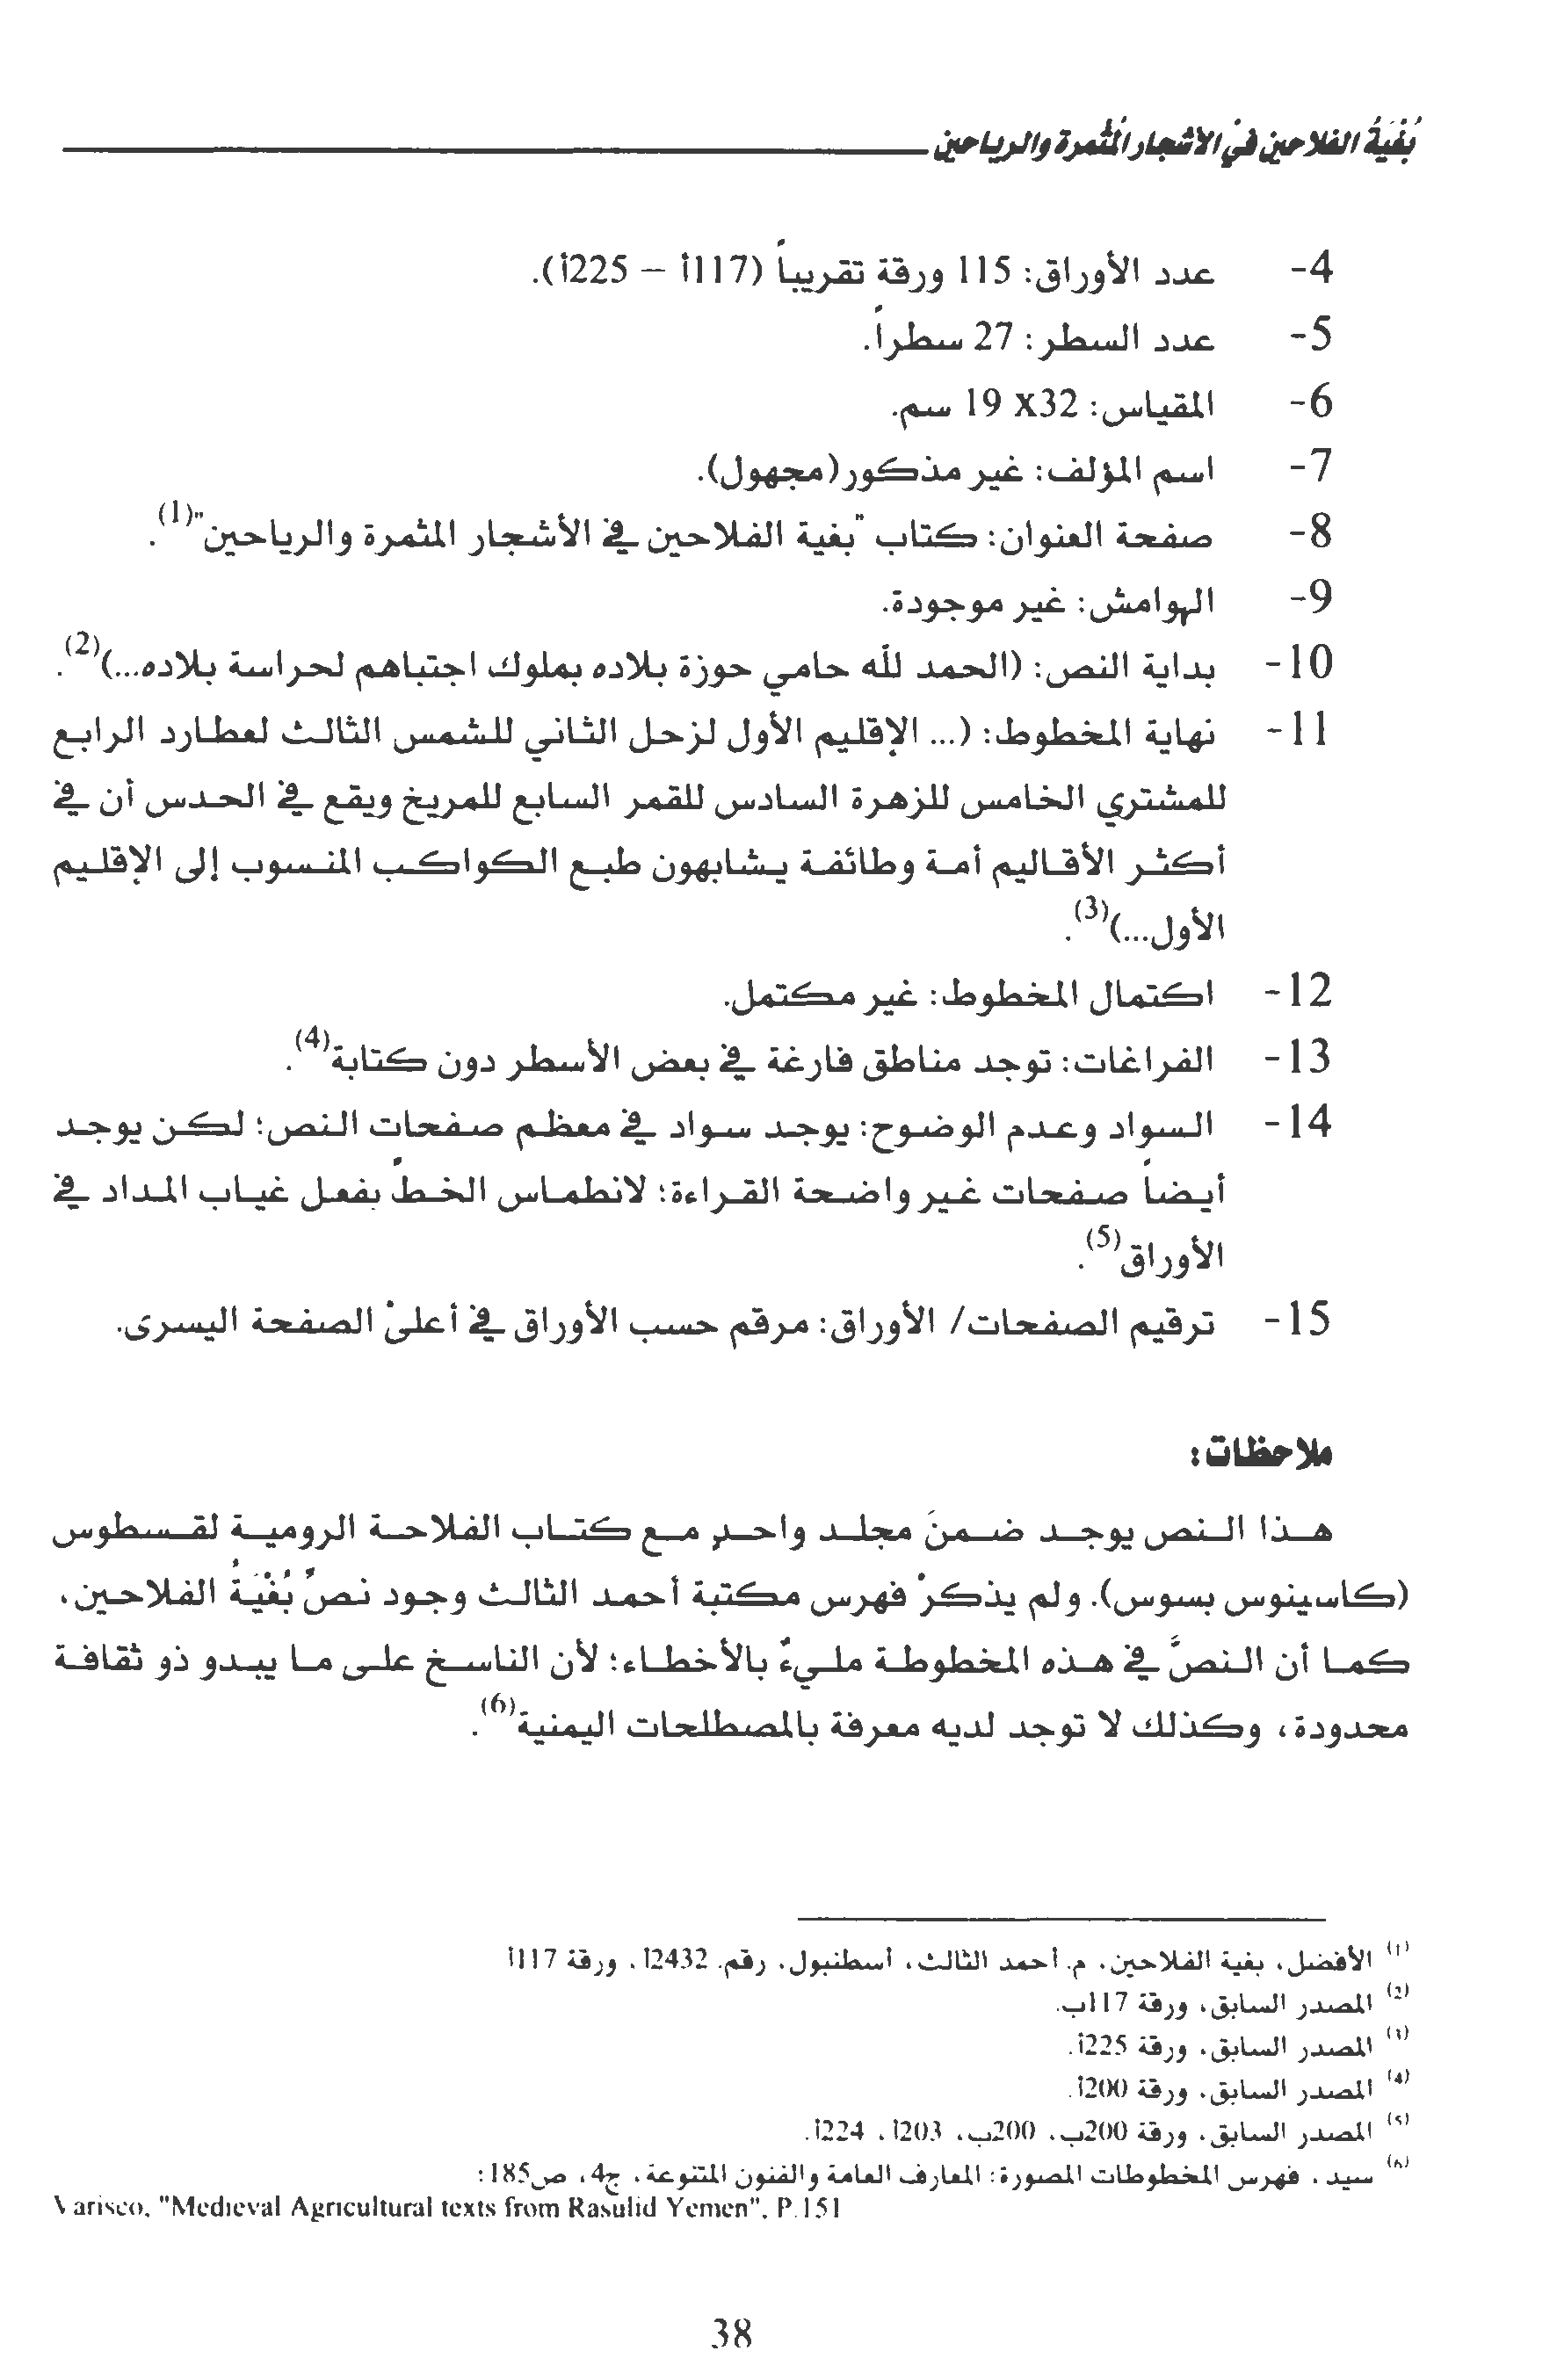 بُغْيَةُ الفلاحين في الأشجار المُثمرة والرياحين
4- عدد الأوراق: 115 ورقة تقريباً (117أ – 225أ).
5- عدد السطر: 27 سطراً.
6- المقياس: 32X 19 سم.
7- اسم المؤلف: غير مذكور(مجهول).
8- صفحة العنوان: كتاب "بغية الفلاحين في الأشجار المثمرة والرياحين"(1).
9- الهوامش: غير موجودة.
10- بداية النص: (الحمد لله حامي حوزة بلاده بملوك اجتباهم لحراسة بلاده...)(2).
11- نهاية المخطوط: (... الإقليم الأول لزحل الثاني للشمس الثالث لعطارد الرابع
للمشتري الخامس للزهرة السادس للقمر السابع للمريخ ويقع في الحدس أن في
أكثر الأقاليم أمة وطائفة يشابهون طبع الكواكب المنسوب إلى الإقليم
الأول...)(3).
12- اكتمال المخطوط: غير مكتمل.
13- الفراغات: توجد مناطق فارغة في بعض الأسطر دون كتابة(4).
14- السواد وعدم الوضوح: يوجد سواد في معظم صفحات النص؛ لكن يوجد
أيضاً صفحات غير واضحة القراءة؛ لانطماس الخط بفعل غياب المداد في
الأوراق(5).
15- ترقيم الصفحات/ الأوراق: مرقم حسب الأوراق في أعلىْ الصفحة اليسرى.
ملاحظات:
هذا النص يوجد ضمنَ مجلد واحدٍ مع كتاب الفلاحة الرومية لقسطوس
(كاسينوس بسوس). ولم يذكرْ فهرس مكتبة أحمد الثالث وجود نصِّ بُغْيَةُ الفلاحين،
كما أن النصَّ في هذه المخطوطة مليءٌ بالأخطاء؛ لأن الناسخ على ما يبدو ذو ثقافة
محدودة، وكذلك لا توجد لديه معرفة بالمصطلحات اليمنية(6).
(1) الأفضل، بغية الفلاحين، م. أحمد الثالث، أسطنبول، رقم. 2432أ، ورقة 117أ
(2) المصدر السابق، ورقة 117ب.
(3) المصدر السابق، ورقة 225أ.
(4) المصدر السابق، ورقة 200أ.
(5) المصدر السابق، ورقة 200ب، 200ب، 203أ، 224أ.
(6) سيد، فهرس المخطوطات المصورة: المعارف العامة والفنون المتنوعة، ج4، ص185:
Varisco, "Medieval Agricultural texts from Rasulid Yemen", P.151
38